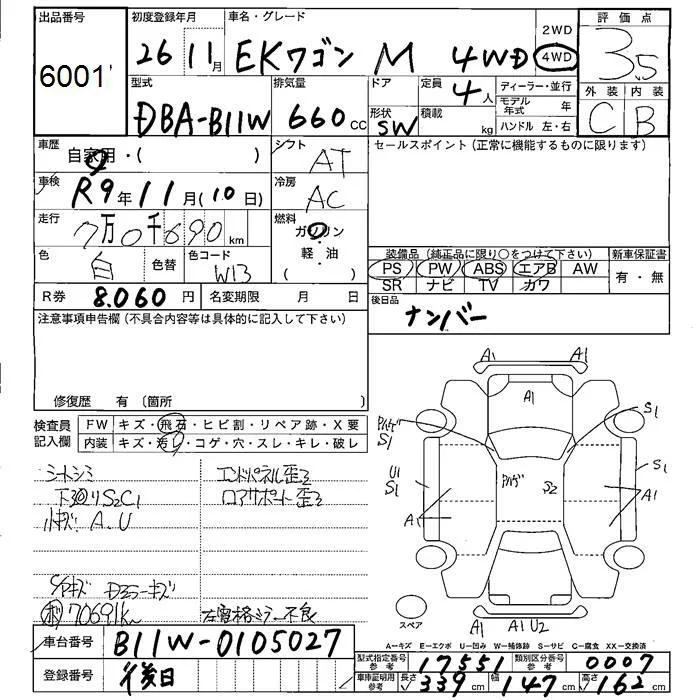 出品番号 初度登録年月 車名・グレード 2WD 4WD 評価点
6001 26 11月 EKワゴン M 4WD 3.5
型式 排気量 ドア 定員 ディーラー・並行 外装 内装
DBA-B11W 660cc 4人 モデル年式 年 C B
形状 積載 ハンドル 左・右
SW kg
車歴 自家用・( ) シフト AT セールスポイント(正常に機能するものに限ります)
車検 R9年11月(10日) 冷房 AC
走行 7万0千690km 燃料 ガソリン・軽・油 ( )
色 白 色替 色コード W13 装備品(純正品に限り○をつけて下さい) 新車保証書
PS PW ABS エアB AW 有・無
SR ナビ TV カワ
R券 8.060円 名変期限 月 日 後日品
ナンバー
注意事項申告欄(不具合内容等は具体的に記入して下さい)
修復歴 有(箇所 )
検査員記入欄 FW キズ・飛石・ヒビ割・リペア跡・X要
内装 キズ・汚れ・コゲ・穴・スレ・キレ・破レ
シートシミ エンドパネル歪ミ
下廻りS2C1 ロアサポート歪ミ
小キズ A.U
70691km 左電格ミラー不良
A1 A1
A1
S1
S1
U1
S1
S2
S1
A1
A1
スペア
A1 A1U2
A=キズ E=エクボ U=凹み W=補修跡 S=サビ C=腐食 XX=交換済
車台番号 B11W-0105027
型式指定番号 参考 17551 類別区分番号 参考 0007
登録番号 後日
車庫証明用 参考 長さ 339cm 幅 147cm 高さ 162cm